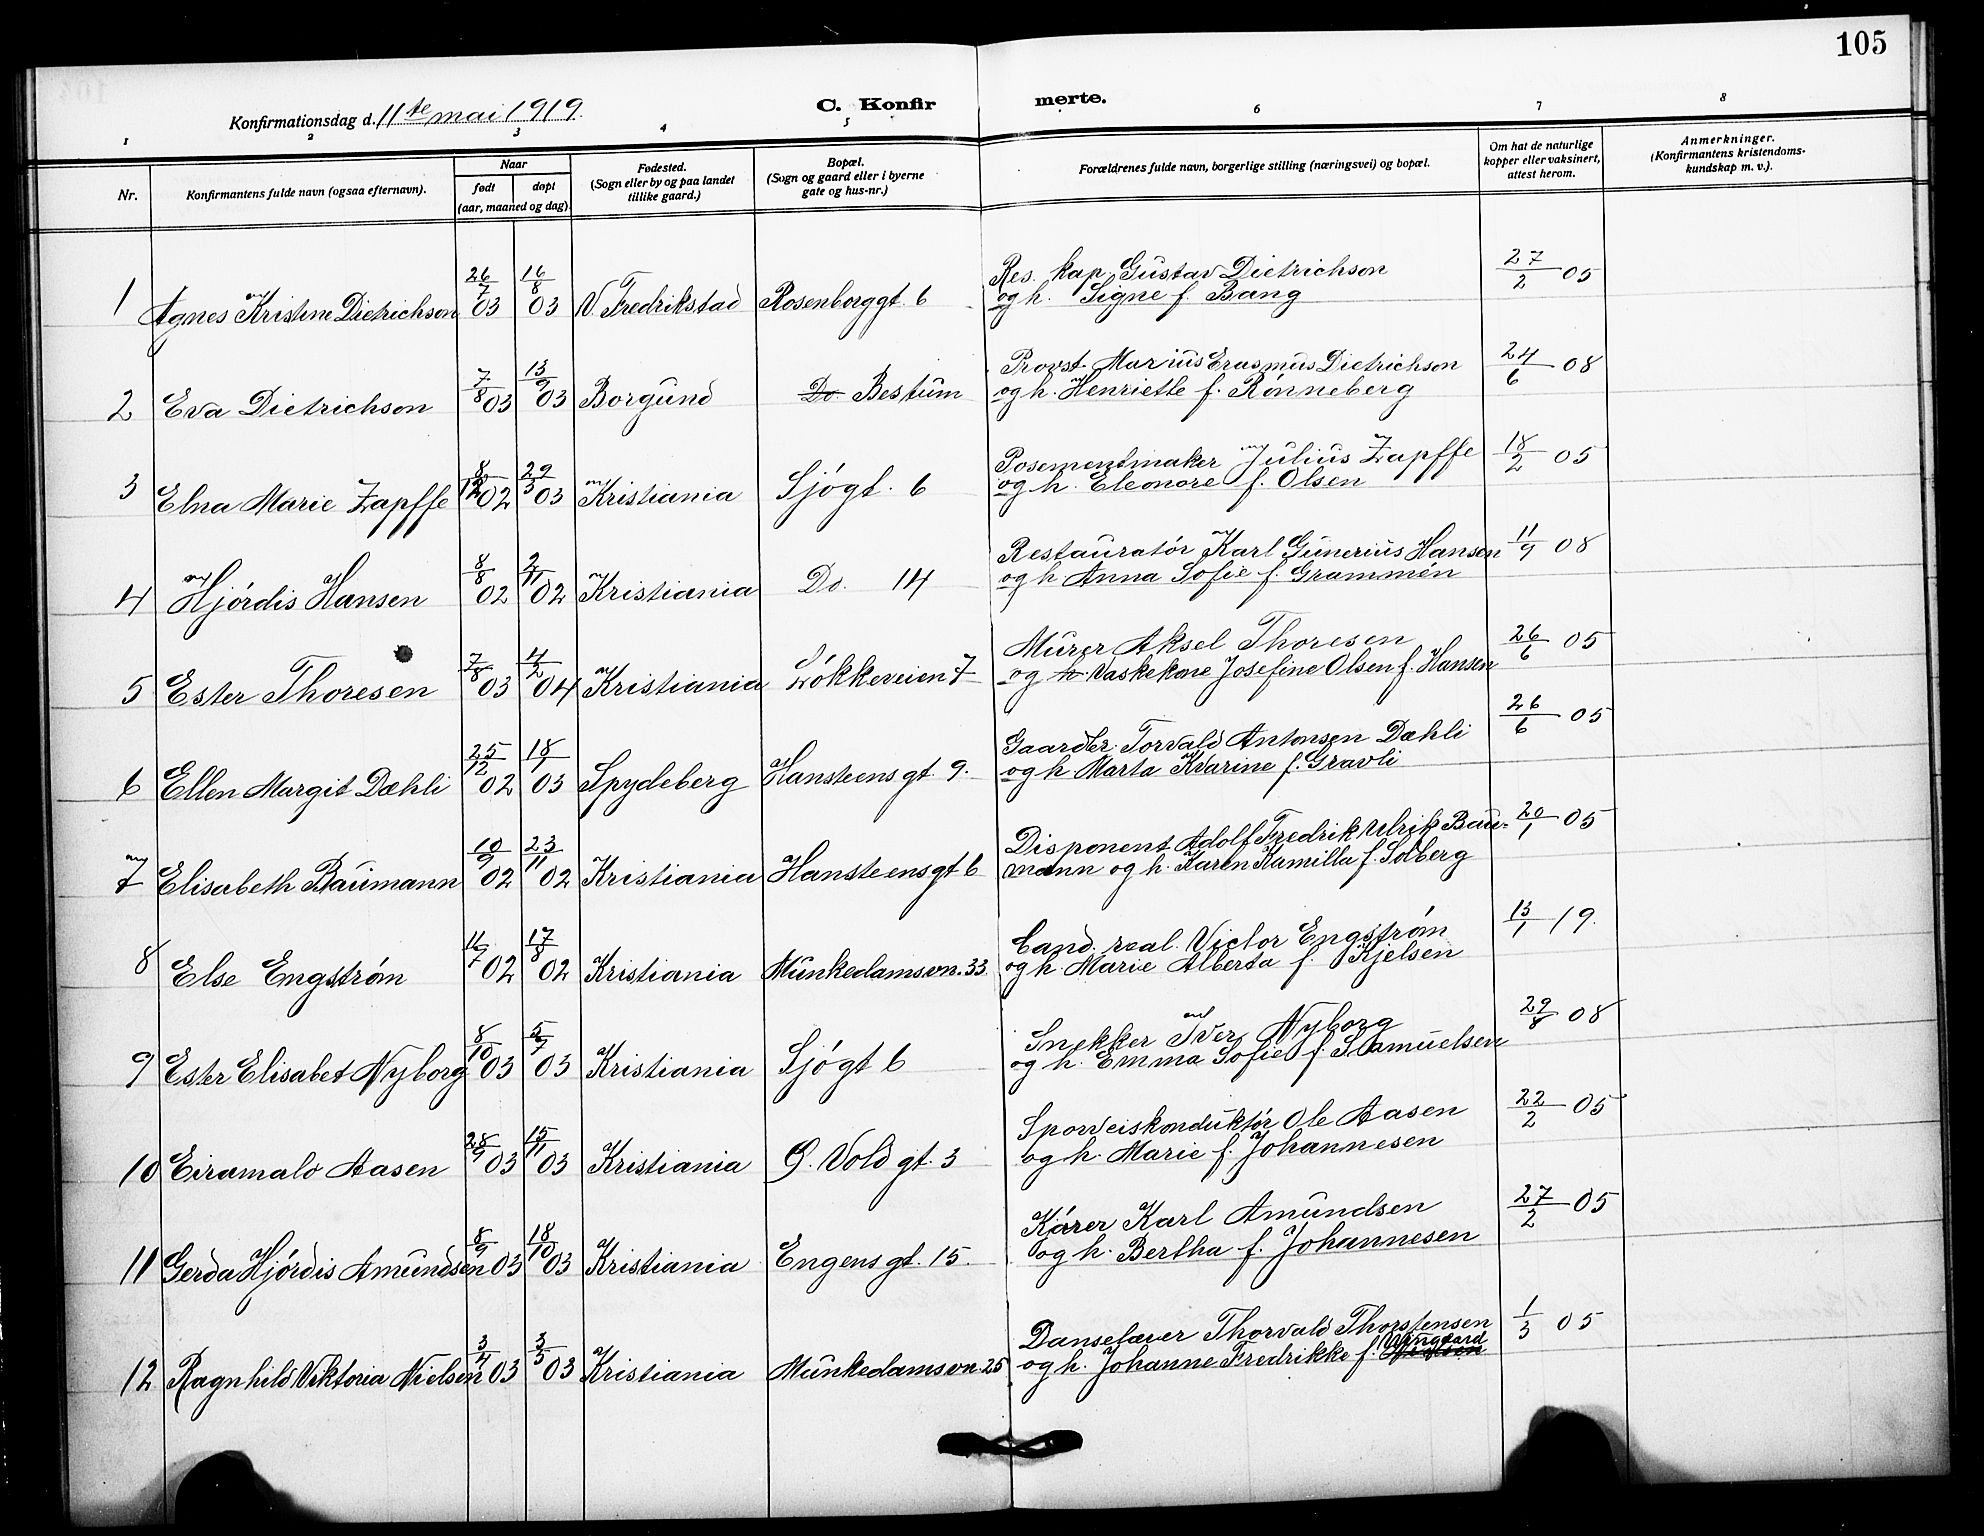 105
Konfirmationsdag d. 11te mai 1919.
C. Konfirmerte.
1 2 3 4 5 6 7 8
Nr.
Konfirmantens fulde navn (ogsaa efternavn).
Naar
født døpt
(aar, maaned og dag).
Fødested.
(Sogn eller by og paa landet
tillike gaard.)
Bopæl.
(Sogn og gaard eller i byerne
gate og hus-nr.)
Forældrenes fulde navn, borgerlige stilling (næringsvei) og bopæl.
Om hat de naturlige
kopper eller vaksinert,
attest herom.
Anmerkninger.
(Konfirmantens kristendoms-
kundskap m. v.).
1 Agnes Kristine Dietrichson 26/7 03 16/8 03 V. Fredrikstad Rosenborggt. 6
Res. kap. Gustav Dietrichson 27/2 05
og h. Signe f. Bang
2 Eva Dietrichson 7/8 03 13/9 03 Borgund Do Bestum
Provst Marius Erasmus Dietrichson 24/6 08
og h. Henriette f. Rønneberg
3 Elna Marie Zapffe 8/12 02 29/3 03 Kristiania Sjøgt. 6
Posementmaker Julius Zapffe 18/2 05
og h. Eleonore f. Olsen
4 Hjørdis Hansen 8/8 02 2/11 02 Kristiania Do. 14
Restauratør Karl Gunerius Hansen 11/9 08
og h Anna Sofie f. Grammén
5 Ester Thoresen 7/8 03 4/2 04 Kristiania Løkkeveien 7
Murer Aksel Thoresen 26/6 05
og h. Vaskekone Josefine Olsen f. Hansen
6 Ellen Margit Dæhli 25/12 02 18/1 03 Spydeberg Hansteensgt. 9.
Gaardbr. Torvald Antonsen Dæhli 26/6 05
og h. Marta Kvarine f. Gravli
7 Elisabeth Baumann 10/9 02 23/11 02 Kristiania Hansteensgt 6
Disponent Adolf Fredrik Ulrik Bau- 20/1 05
mann og h. Karen Kamilla f. Solberg
8 Else Engstrøm 11/7 02 17/8 02 Kristiania Munkedamsvn. 33
Cand. real. Victor Engstrøm 13/1 19.
og h. Marie Alberta f. Kjelsen
9 Ester Elisabet Nyborg 8/10 03 03 Kristiania Sjøgt 6
Snekker Iver Nyborg 29/8 08
og h. Emma Sofie f. Samuelsen
10 Eiramalo Aasen 28/9 03 15/11 03 Kristiania G. Vold gt. 3
Sporveiskonduktør Ole Aasen 22/2 05
og h. Marie f. Johannesen
11 Gerda Hjørdis Amundsen 8/9 03 18/10 03 Kristiania Engensgt. 15.
Kjører Karl Amundsen 27/2 05
og h. Bertha f. Johannesen
12 Ragnhild Viktoria Nielsen 3/4 03 3/5 03 Kristiania Munkedamsvn. 25
Danselærer Thorvald Thorstensen 1/3 05
og h. Johanne Fredrikke f.